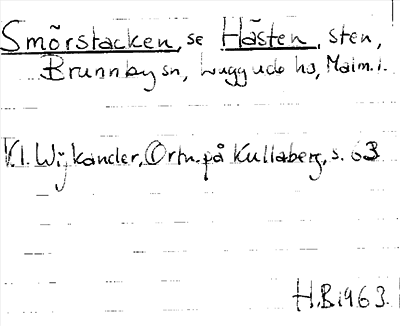 Smörstacken, se Hästen, sten,
Brunnby sn, Luggude hd, Malm. l.
V. Wijkander, Ortn. på Kullaberg, s. 63
H.B. 1963.